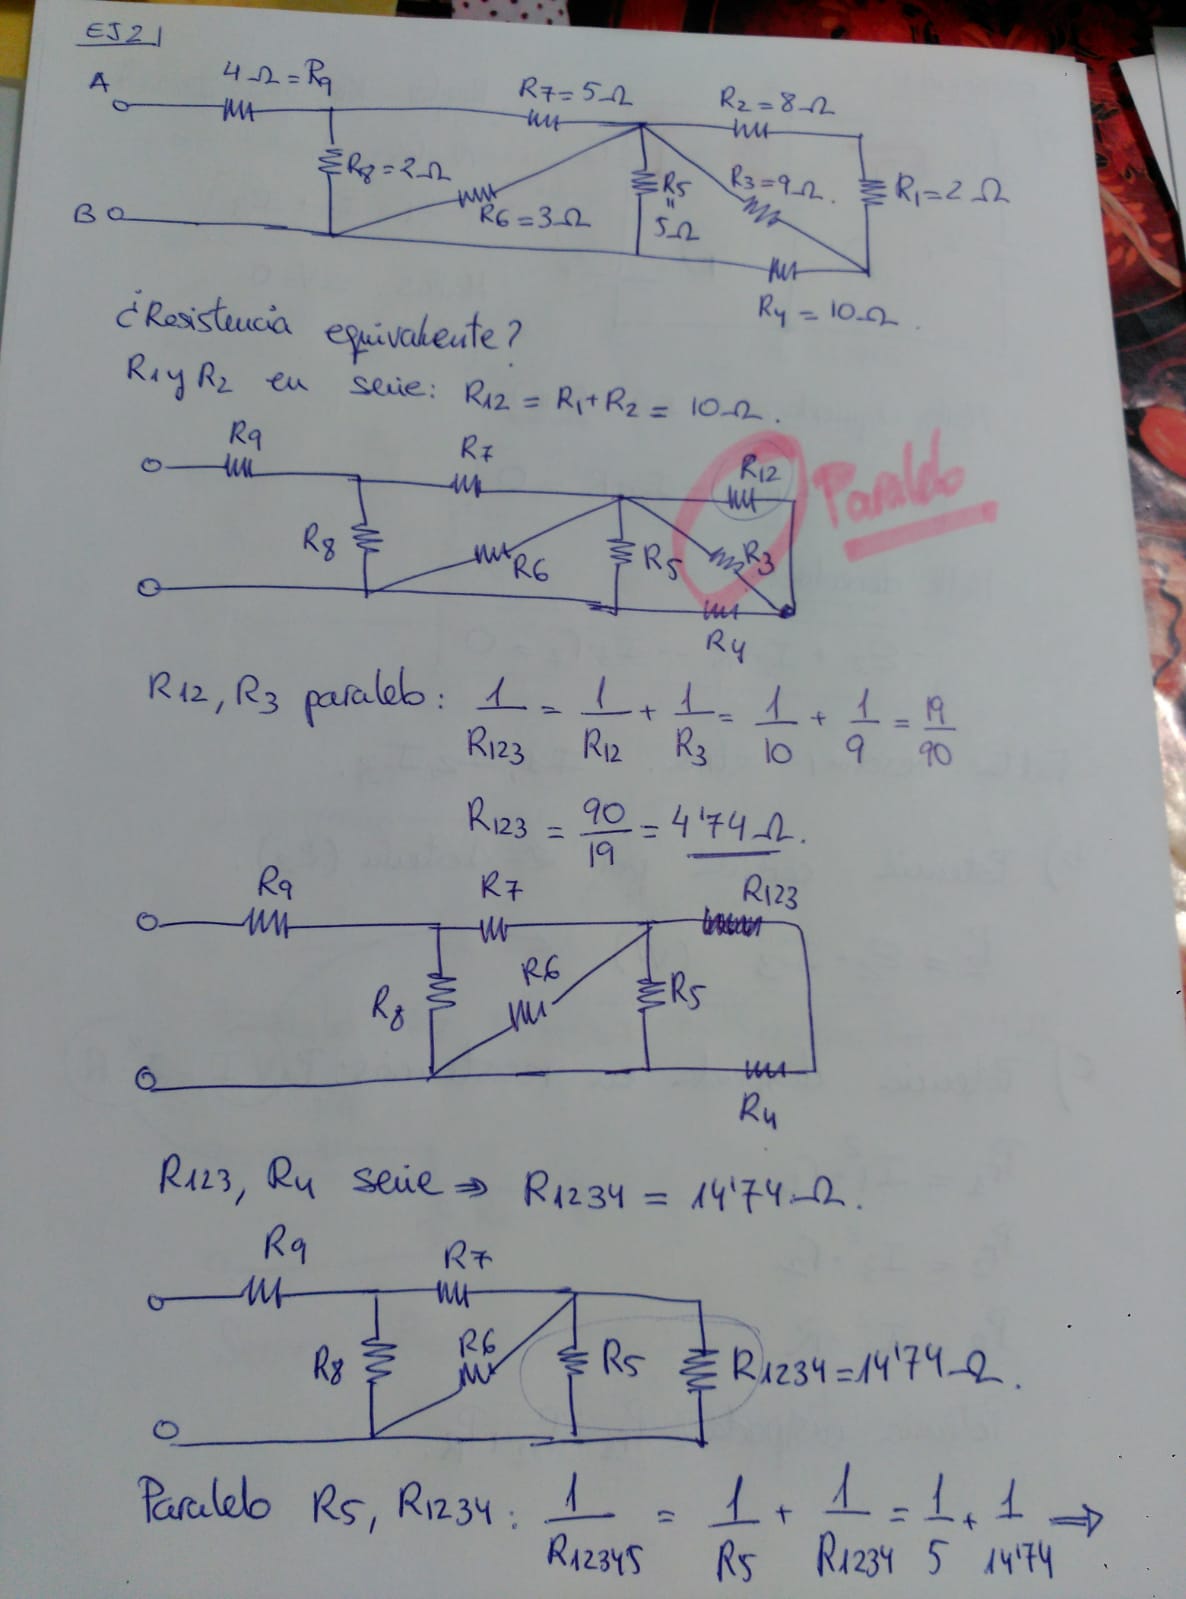 EJ21
A
4Ω=R9
R7=5Ω
R2=8Ω
R8=2Ω
R6=3Ω
R5
=
5Ω
R3=9Ω.
R1=2Ω
B
R4=10Ω.
¿Resistencia equivalente?
R1 y R2 en serie: R12 = R1+R2 = 10Ω.
R9
R7
R12
Paralelo
R8
R6
R5
R3
R4
R12, R3 paralelo: 1/R123 = 1/R12 + 1/R3 = 1/10 + 1/9 = 19/90
R123 = 90/19 = 4'74Ω.
R9
R7
R123
R8
R6
R5
R4
R123, R4 serie ⇒ R1234 = 14'74Ω.
R9
R7
R8
R6
R5
R1234=14'74Ω.
Paralelo R5, R1234: 1/R12345 = 1/R5 + 1/R1234 = 1/5 + 1/14'74 ⇒